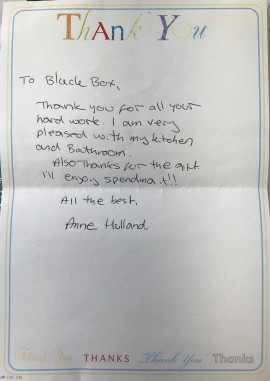 Thank You
To Black Box,
Thank you for all your
hard work. I am very
pleased with my kitchen
and Bathroom.
Also Thanks for the gift
I'll enjoy spending it!!
All the best,
Anne Holland
Thank You THANKS Thank You Thanks